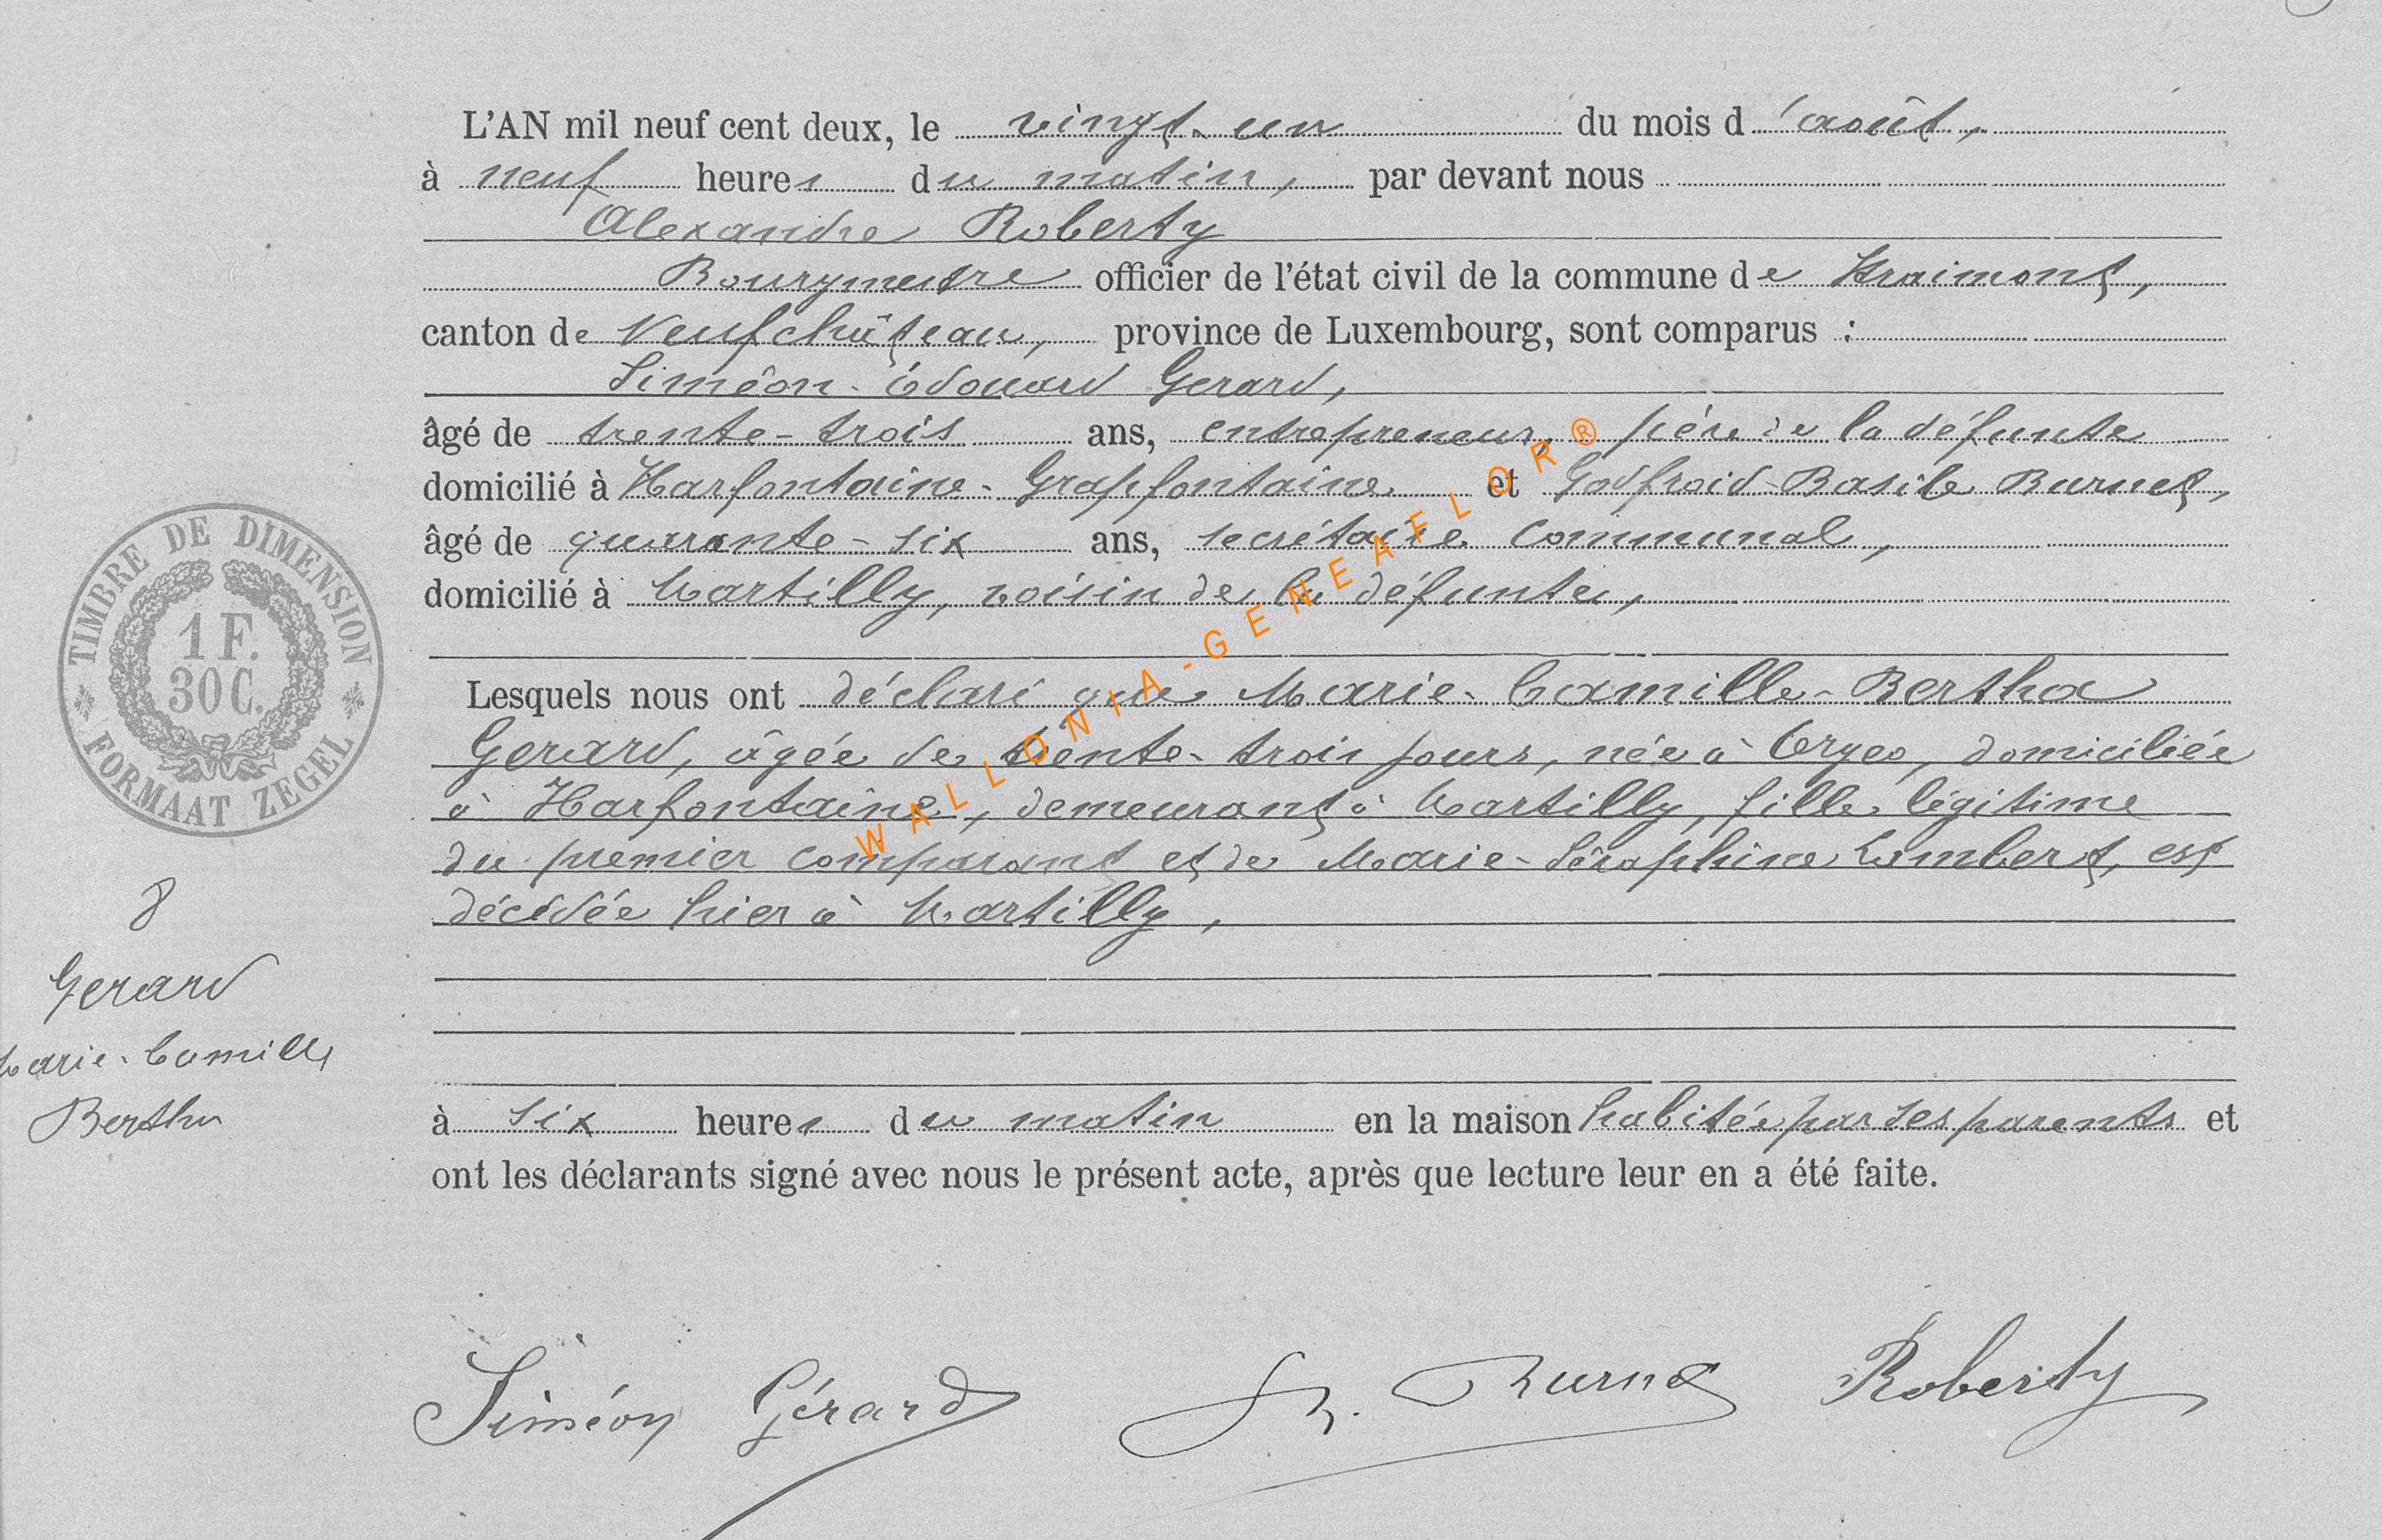 L'AN mil neuf cent deux, le vingt-un du mois d'août,
à neuf heures du matin, par devant nous
Alexandre Roberty
Bourgmestre officier de l'état civil de la commune de Straimont,
canton de Neufchâteau, province de Luxembourg, sont comparus :
Siméon-Edouard Gerard,
âgé de trente-trois ans, entrepreneur, père de la défunte
domicilié à Harfontaine-Grapfontaine et Godfroid-Basile Burnet,
âgé de quarante-six ans, secrétaire communal,
domicilié à Martilly, voisin de la défunte,
Lesquels nous ont déclaré que Marie-Camille-Bertha
Gerard, âgée de trente-trois jours, née à Orgeo, domiciliée
à Harfontaine, demeurant à Martilly, fille légitime
du premier comparant et de Marie-Séraphine Lambert, est
décédée hier à Martilly,
à six heures du matin en la maison habitée par ses parents et
ont les déclarants signé avec nous le présent acte, après que lecture leur en a été faite.
TIMBRE DE DIMENSION
1 F.
30 C.
FORMAAT ZEGEL
8
Gerard
Marie-Camille
Bertha
Siméon Gérard
Burnet
Roberty
WALLONIA-GENEAFLOR®